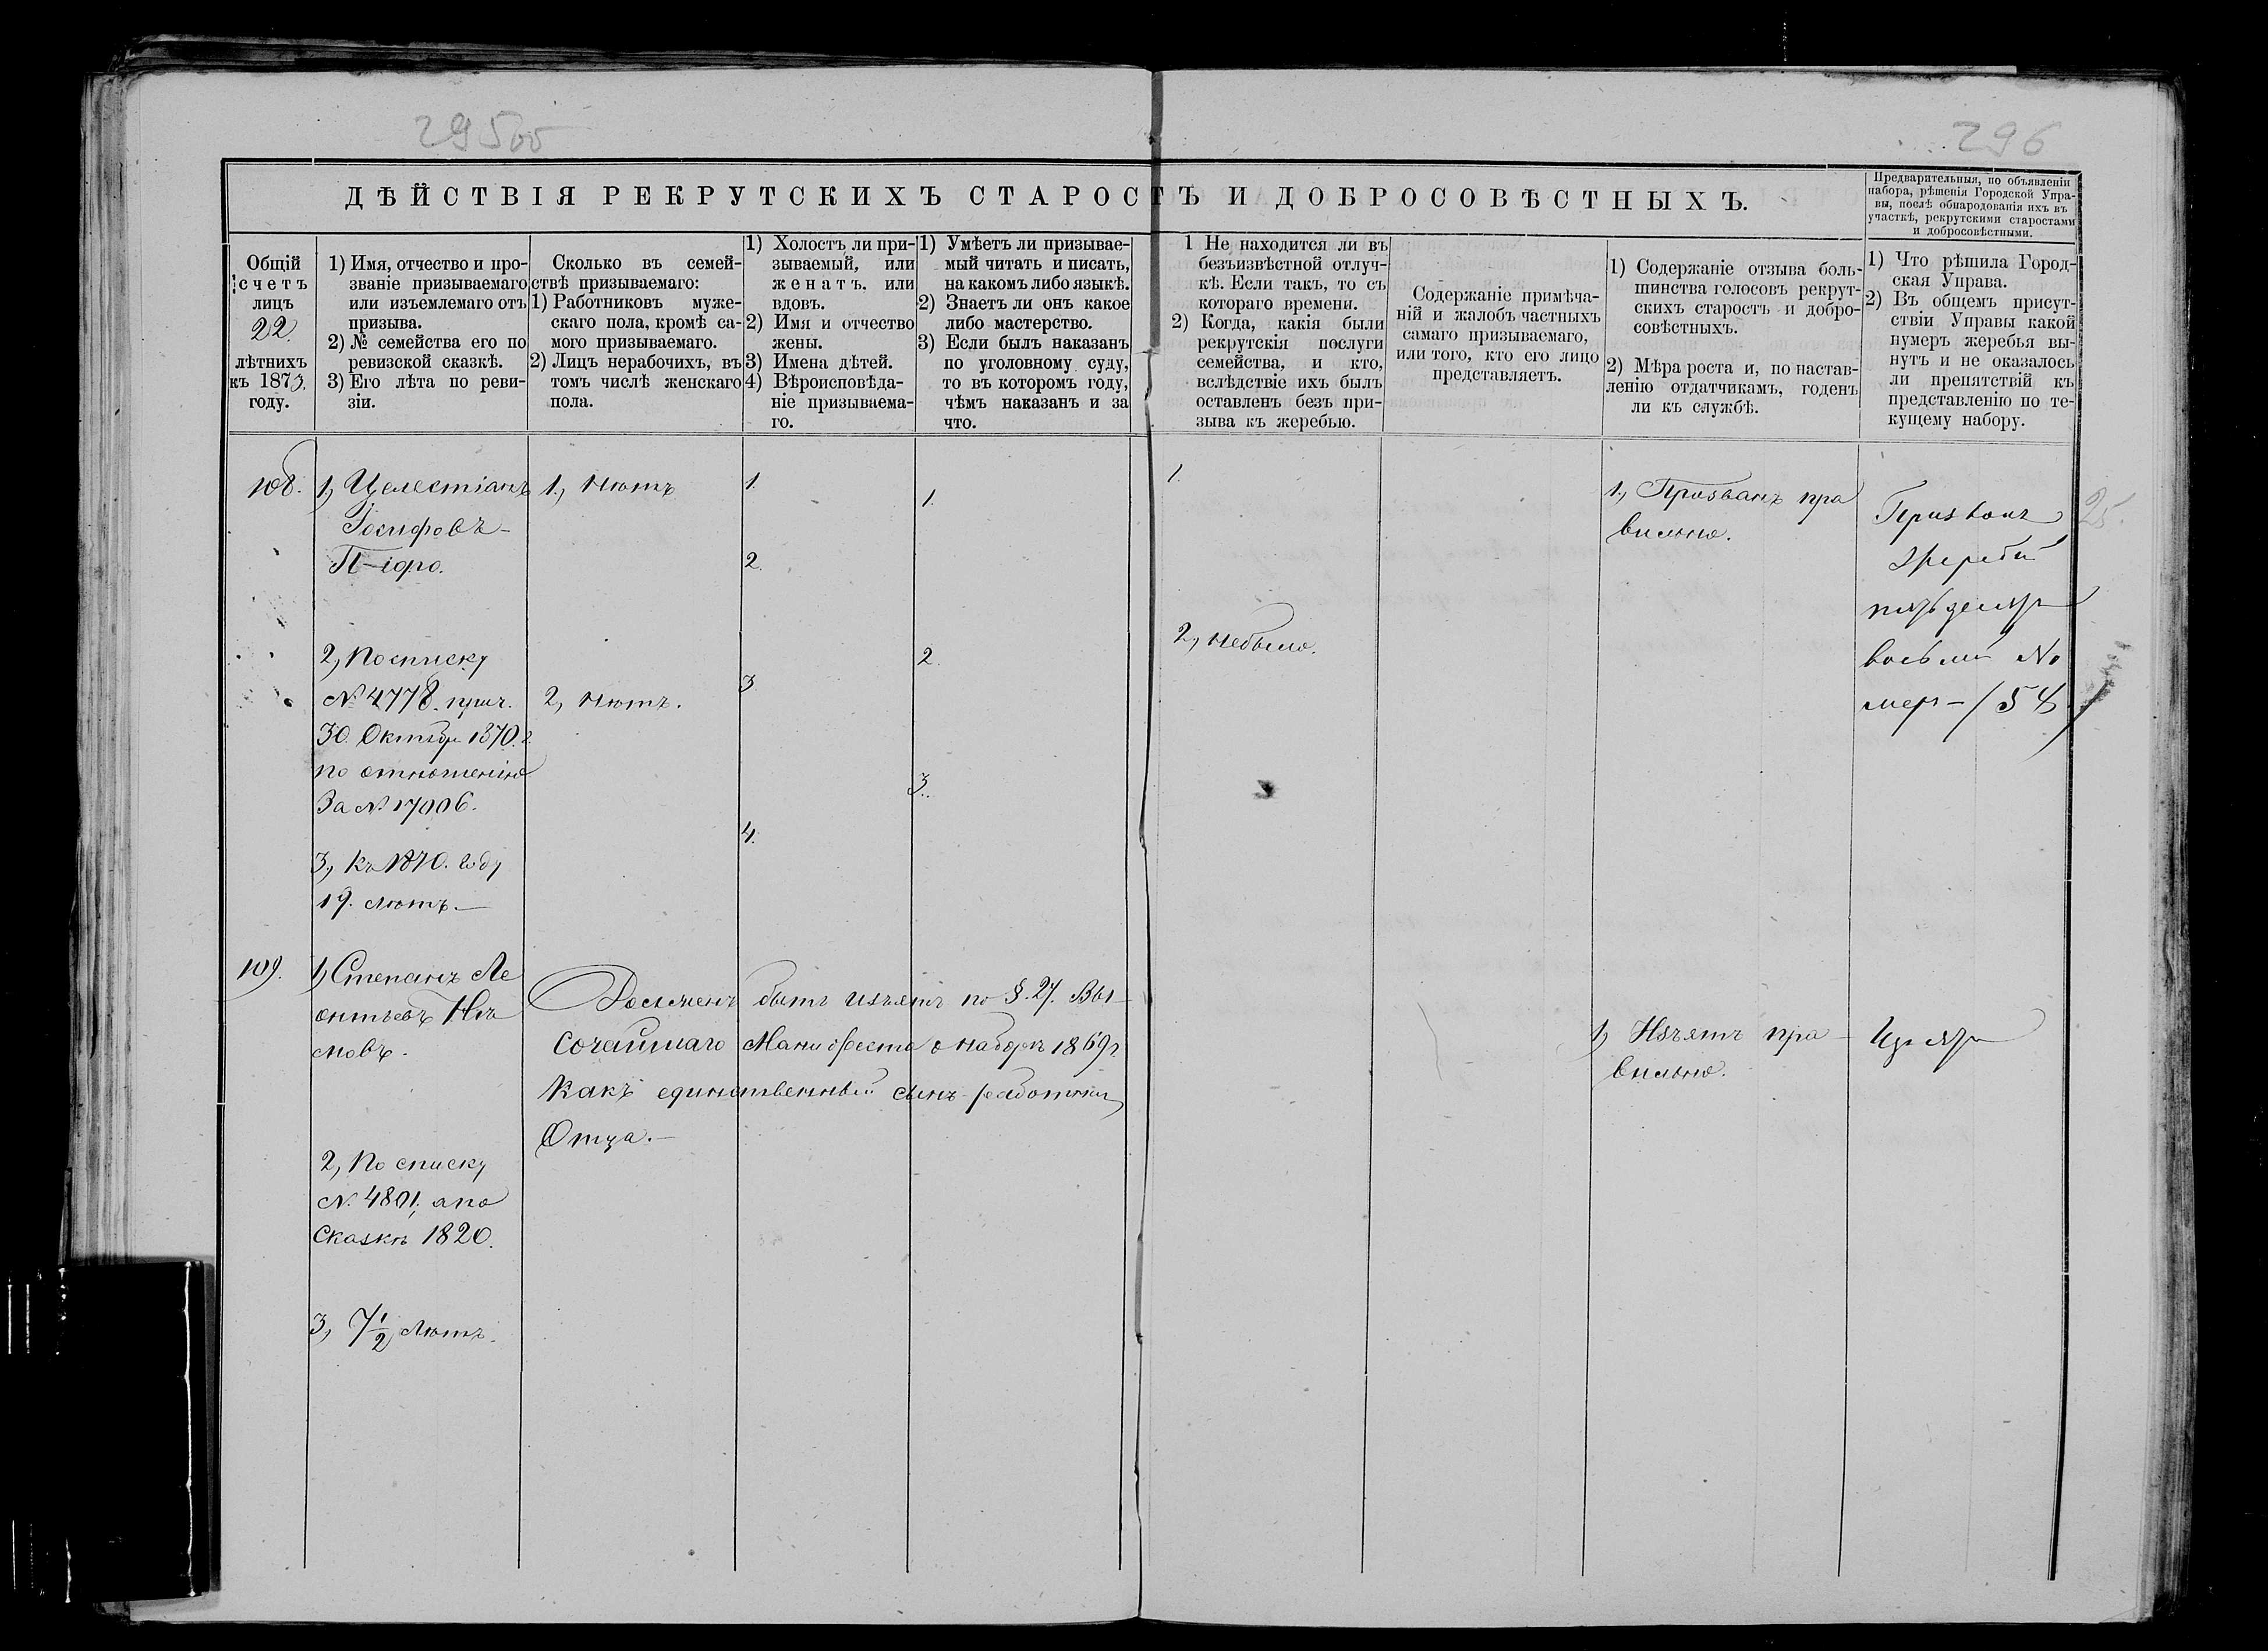 295об
296
ДѢЙСТВІЯ РЕКРУТСКИХЪ СТАРОСТЪ И ДОБРОСОВѢСТНЫХЪ.
Предварительныя, по объявленіи
набора, рѣшенія Городской Упра-
вы, послѣ обнародованія ихъ въ
участкѣ, рекрутскими старостами
и добросовѣстными.
Общій
счетъ
лицъ
22
лѣтнихъ
къ 1873.
году.
1) Имя, отчество и про-
званіе призываемаго
или изъемлемаго отъ
призыва.
2) № семейства его по
ревизской сказкѣ.
3) Его лѣта по реви-
зіи.
Сколько въ семей-
ствѣ призываемаго:
1) Работниковъ муже-
скаго пола, кромѣ са-
мого призываемаго.
2) Лицъ нерабочихъ, въ
томъ числѣ женскаго
пола.
1) Холостъ ли при-
зываемый, или
женатъ, или
вдовъ.
2) Имя и отчество
жены.
3) Имена дѣтей.
4) Вѣроисповѣда-
ніе призываема-
го.
1) Умѣетъ ли призывае-
мый читать и писать,
на какомъ либо языкѣ.
2) Знаетъ ли онъ какое
либо мастерство.
3) Если былъ наказанъ
по уголовному суду,
то въ которомъ году,
чѣмъ наказанъ и за
что.
1 Не находится ли въ
безъизвѣстной отлуч-
кѣ. Если такъ, то съ
котораго времени.
2) Когда, какія были
рекрутскія послуги
семейства, и кто,
вслѣдствіе ихъ былъ
оставленъ безъ при-
зыва къ жеребью.
Содержаніе примѣча-
ній и жалобъ частныхъ
самаго призываемаго,
или того, кто его лицо
представляетъ.
1) Содержаніе отзыва боль-
шинства голосовъ рекрут-
скихъ старостъ и добро-
совѣстныхъ.
2) Мѣра роста и, по настав-
ленію отдатчикамъ, годенъ
ли къ службѣ.
1) Что рѣшила Город-
ская Управа.
2) Въ общемъ присут-
ствіи Управы какой
нумеръ жеребья вы-
нутъ и не оказалось
ли препятствій къ
представленію по те-
кущему набору.
108.
1, Целестіанъ
Іосифовъ
2, По списку
№ 4778. прич.
30. Октября 1870. г.
по отношенію
За № 17006.
3, Къ 1870. году
19. лѣтъ.—
1., Нѣтъ
2, Нѣтъ.
1.
2.
3.
4.
1.
2.
3.
1.
2, Небыло.
1., Призванъ пра
вильно.
Призванъ
Жребій
пятьдесятъ
восьмы No
меръ — (58)
25.
109.
1, Степанъ Ле
онтьевъ
2, По списку
№ 4801; а по
Сказкѣ 1820.
3, 7 1/2 Лѣтъ.
Долженъ быть изъятъ по §. 27. Вы-
сочайшаго Манифеста о наборѣ 1869 г.
Какъ единственный сынъ работникъ
Отца.—
1, Изъятъ пра-
вильно.
Изъятъ